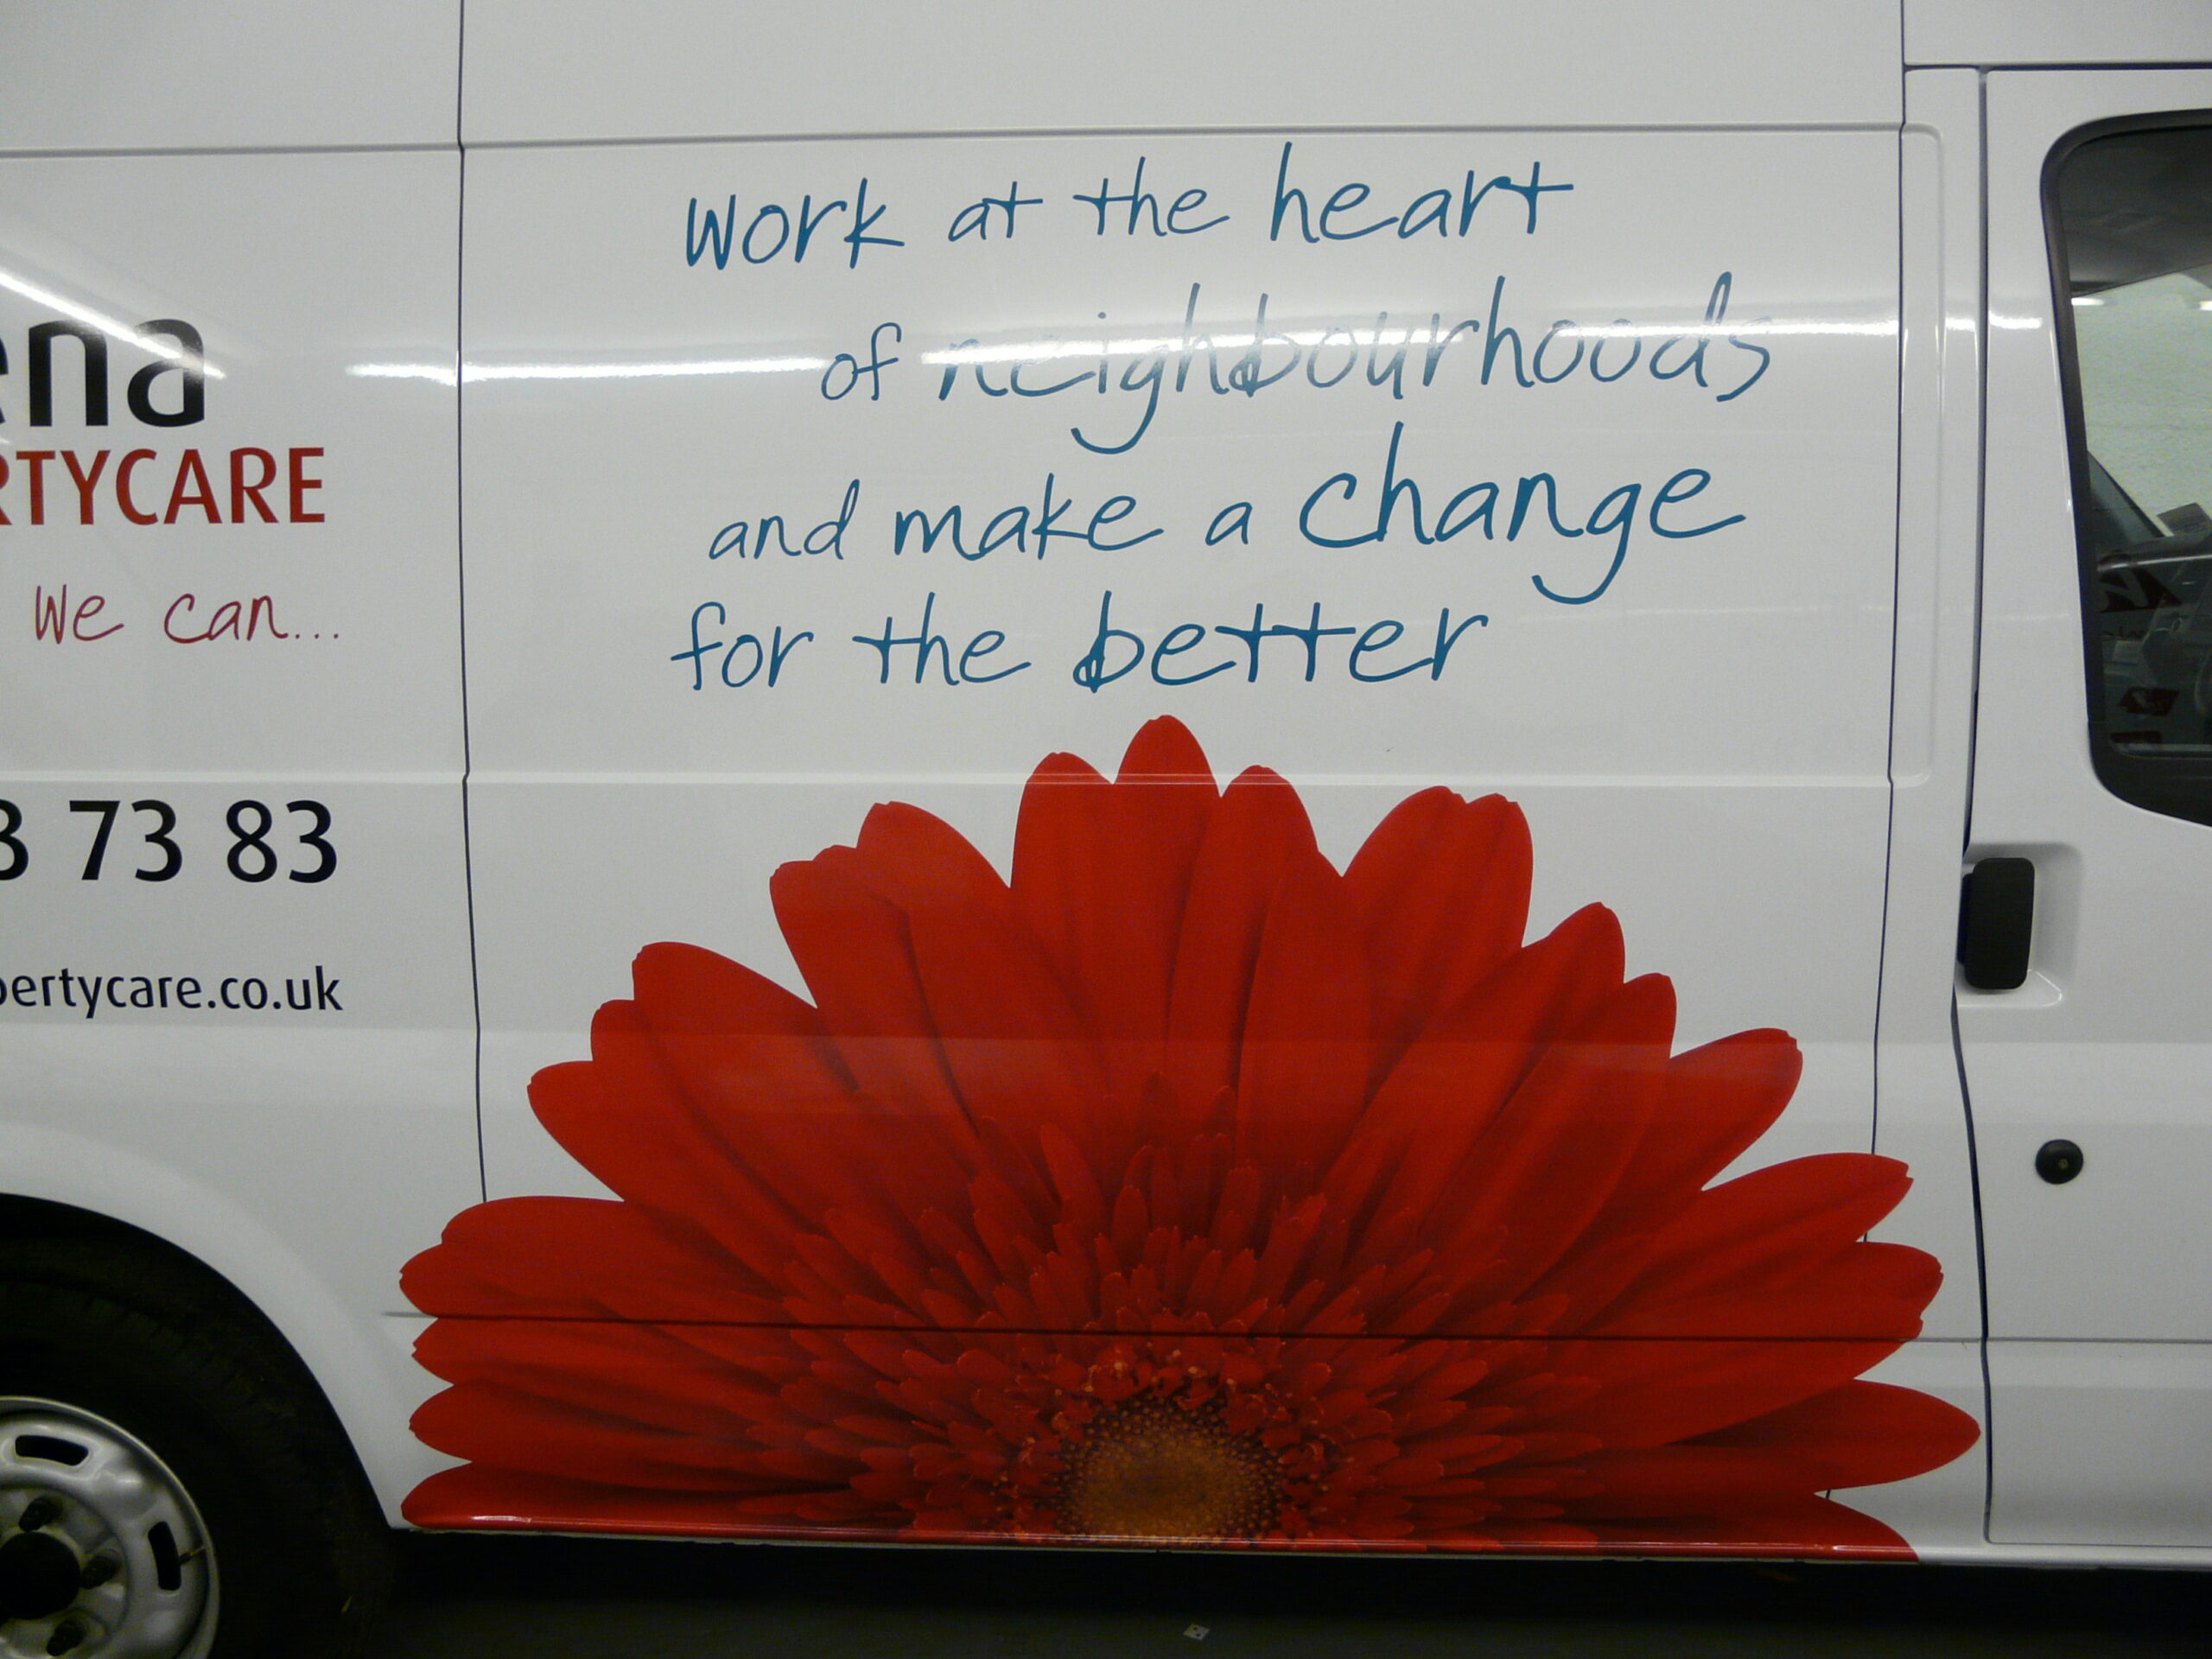 ena
RTYCARE
We can...
3 73 83
pertycare.co.uk
work at the heart
of neighbourhoods
and make a change
for the better